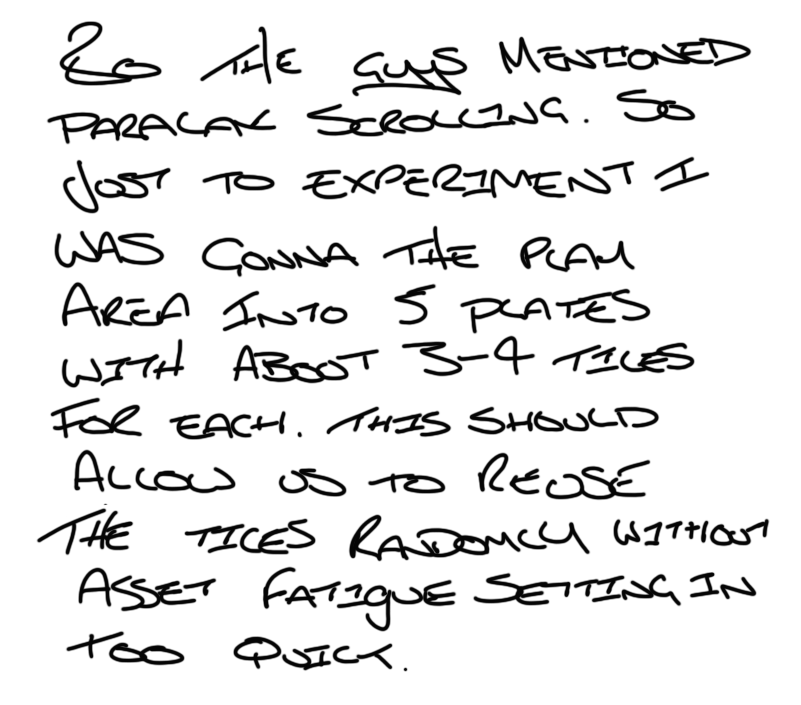 So the guys mentioned
paralax scrolling. So
just to experiment I
was gonna the play
area into 5 plates
with about 3-4 tiles
for each. This should
allow us to reuse
the tiles randomly without
asset fatigue setting in
too quick.